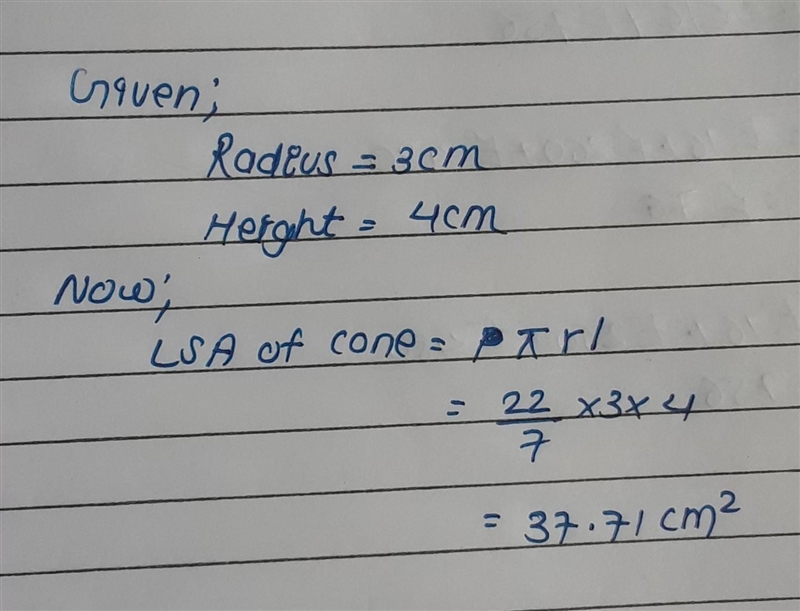 Given;
Radius = 3cm
Height = 4cm
Now;
LSA of cone = πrl
= 22/7 ×3×4
= 37.71 cm²